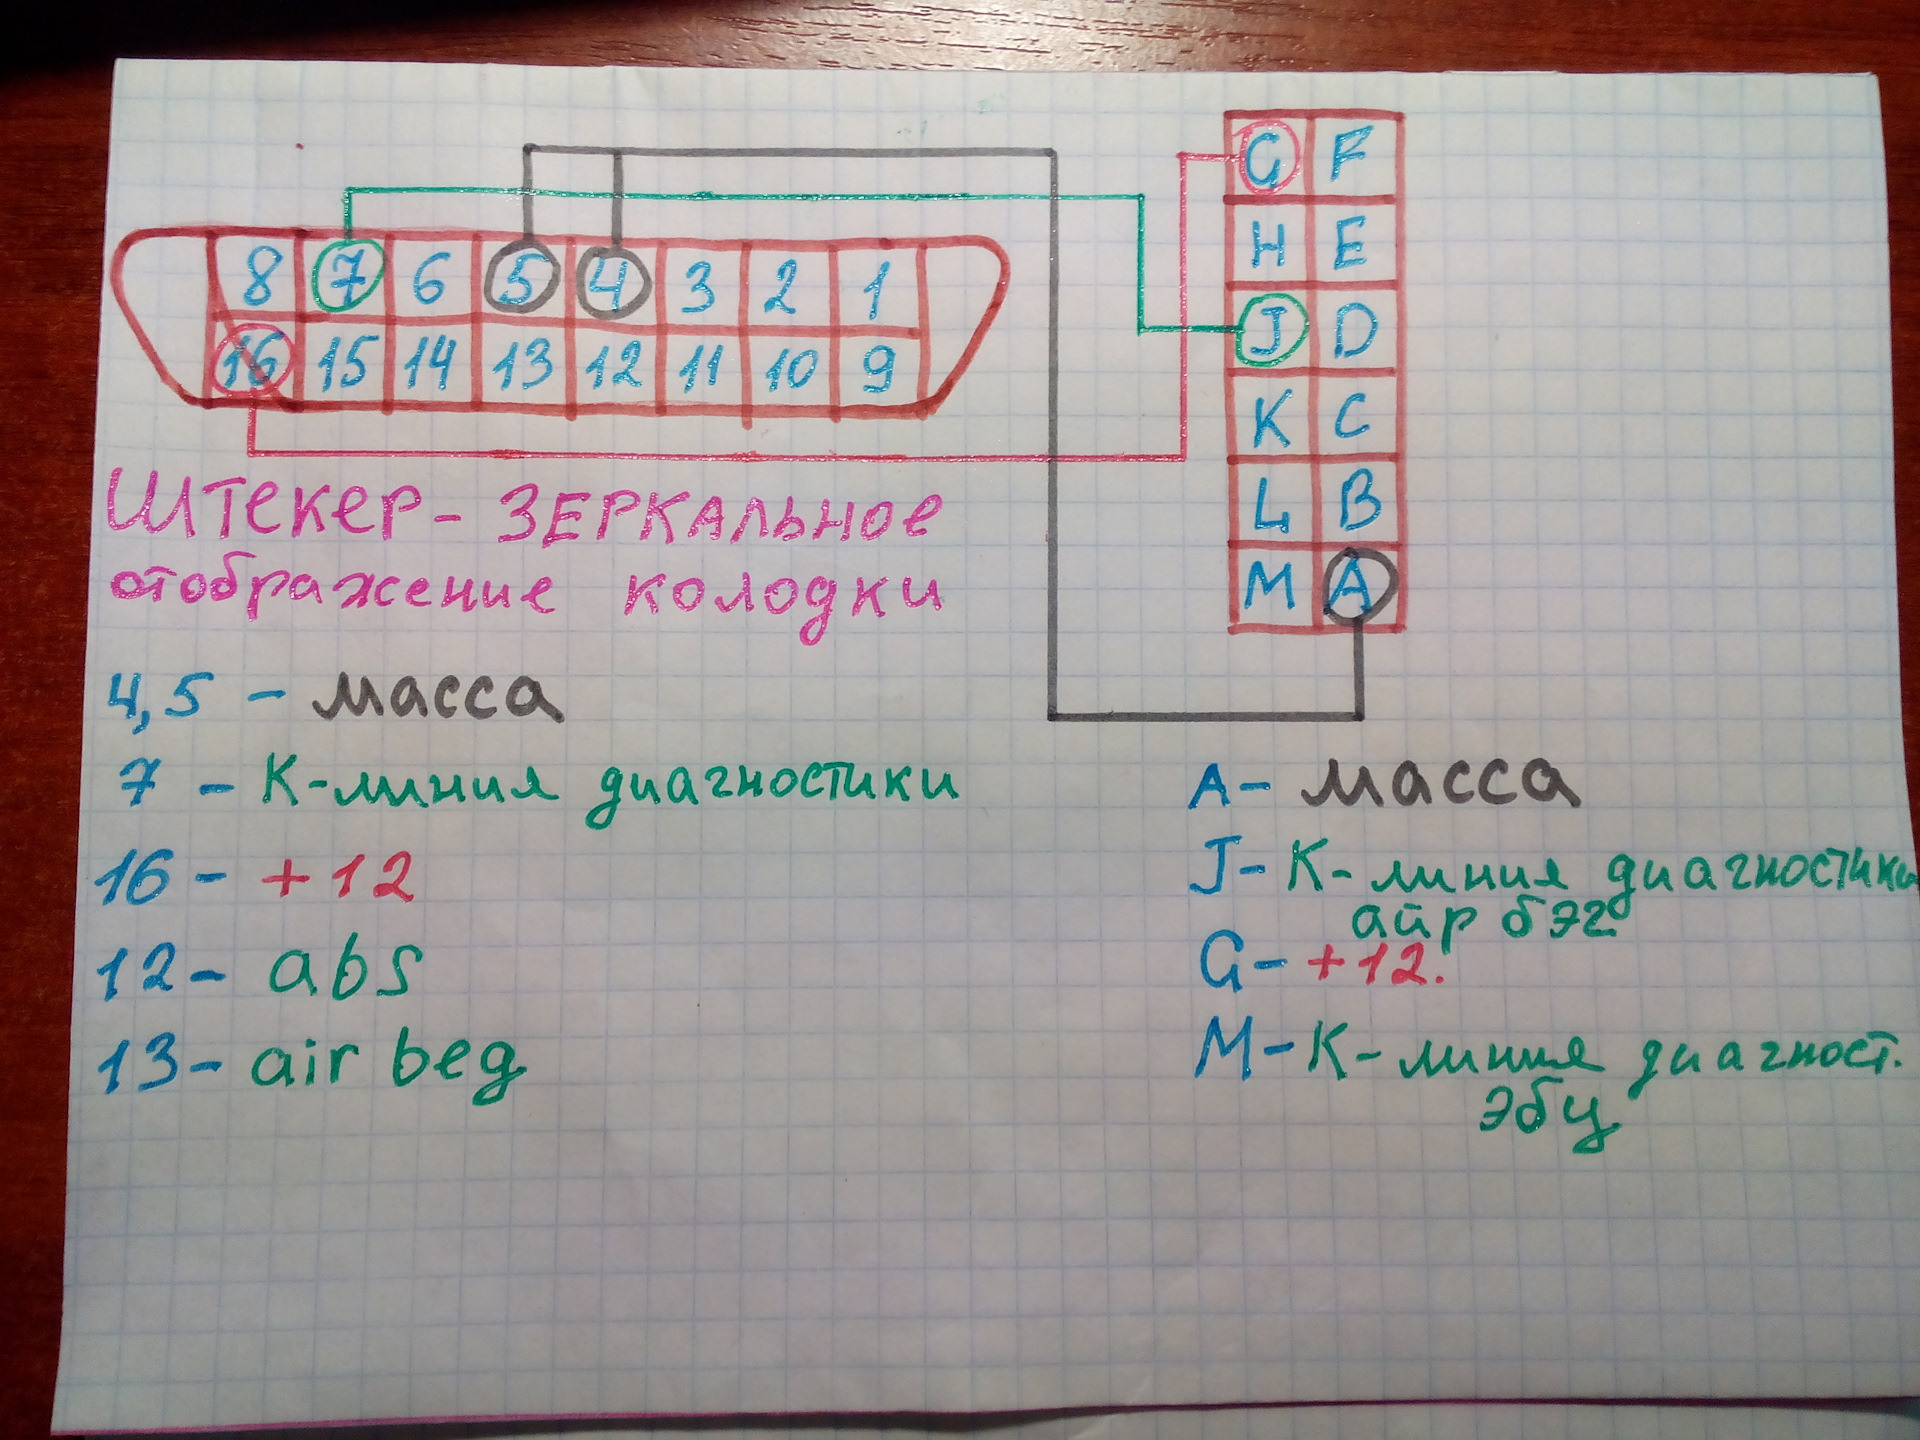 8 7 6 5 4 3 2 1
16 15 14 13 12 11 10 9
G F
H E
J D
K C
L B
M A
Штекер - зеркальное
отображение колодки
4,5 - масса
7 - К-линия диагностики
16 - +12
12 - abs
13 - air beg
A - масса
J - К-линия диагностики
айр бэг
G - +12.
M - К-линия диагност.
эбу